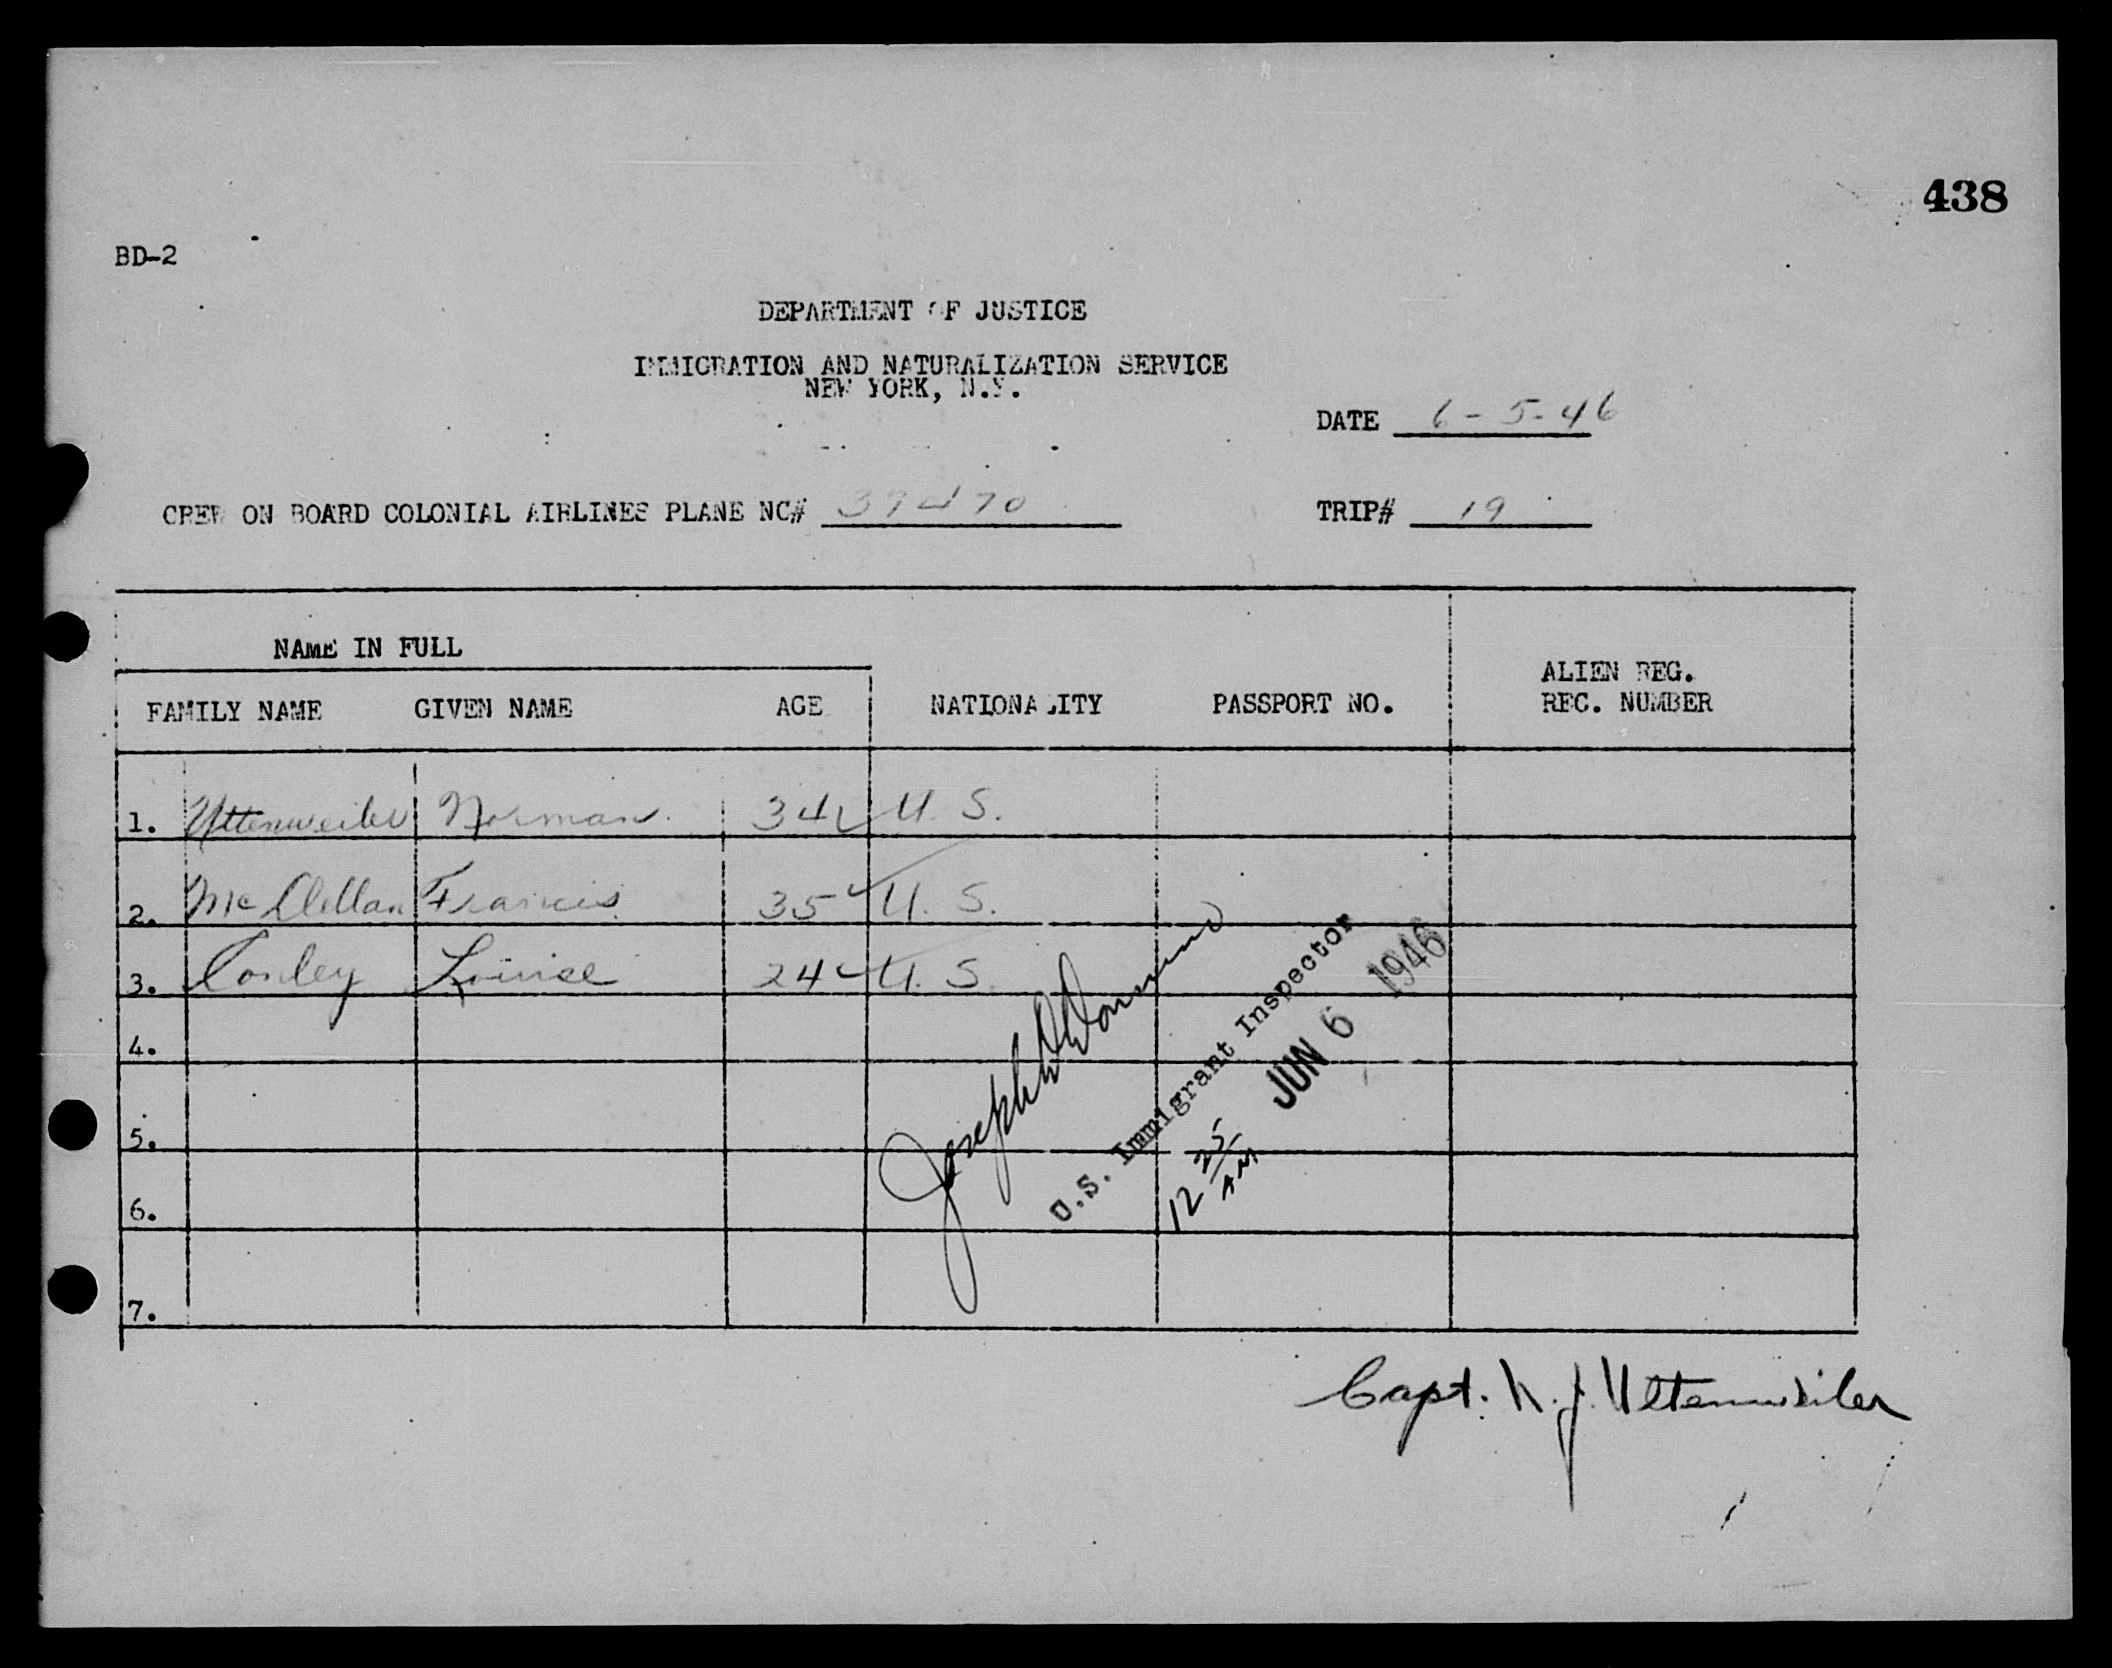 438
BD-2
DEPARTMENT OF JUSTICE
IMMIGRATION AND NATURALIZATION SERVICE
NEW YORK, N.Y.
DATE 6-5-46
CREW ON BOARD COLONIAL AIRLINES PLANE NC# 37470 TRIP# 19
NAME IN FULL
ALIEN REG.
FAMILY NAME GIVEN NAME AGE NATIONALITY PASSPORT NO. REC. NUMBER
1. Uttenweiler Norman. 34 U. S.
2. McClellan Francis 35 U. S.
3. Conley Louise 24 U. S.
4.
5.
6.
7.
Joseph
U.S. Immigrant Inspector
12 25 AM JUN 6 1946
Capt. N. J. Uttenweiler